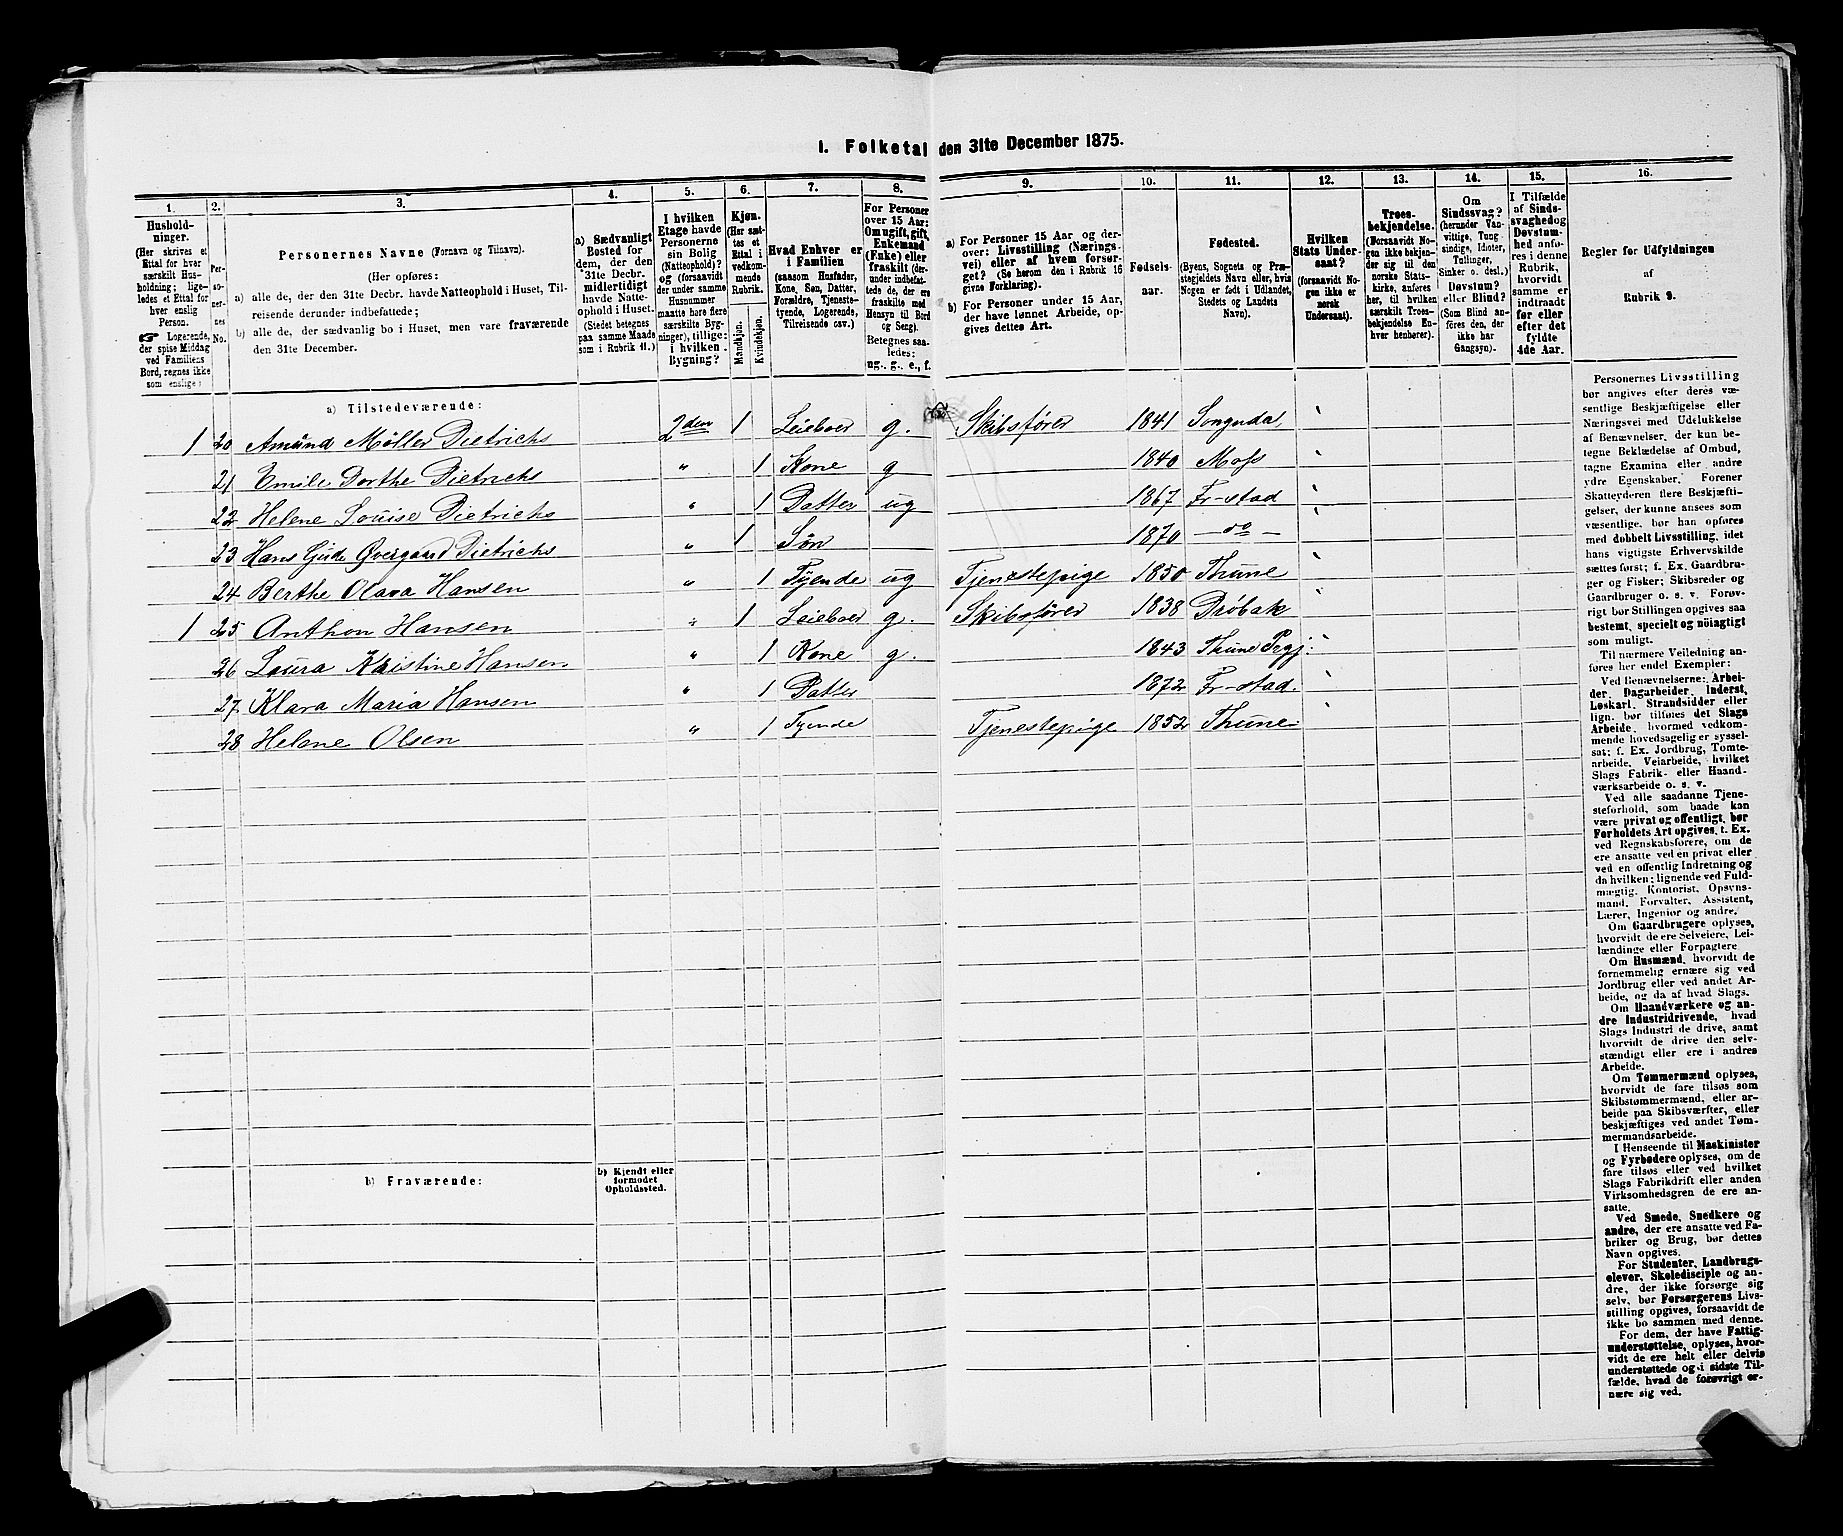 1. Folketal den 31te December 1875.
1. 2. 3. 4. 5. 6. 7. 8. 9. 10. 11. 12. 13. 14. 15. 16.
Hushold-
ninger.
(Her skrives et
Ettal for hver
særskilt Hus-
holdning; lige-
ledes et Ettal for
hver enslig
Person.
☞ Logerende,
der spise Middag
ved Familiens
Bord, regnes ikke
som enslige)
Per-
so-
ner-
nes
No.
Personernes Navne (Fornavn og Tilnavn).
(Her opføres:
a) alle de, der den 31te Decbr. havde Natteophold i Huset, Til-
reisende derunder indbefattede;
b) alle de, der sædvanlig bo i Huset, men vare fraværende
den 31te December.
a) Sædvanligt
Bosted for
dem, der den
31te Decbr.
midlertidigt
havde Natte-
ophold i Huset.
(Stedet betegnes
paa samme Maade
som i Rubrik 11.)
I hvilken
Etage havde
Personerne
sin Bolig
(Natteophold)?
og (forsaavidt
der under samme
Husnummer
maatte høre flere
særskilte Byg-
ninger), tillige:
i hvilken
Bygning?
Kjøn.
(Her sæt-
tes et
Ettal i
vedkom-
mende
Rubrik.
Mandkjøn.
Kvindekjøn.
Hvad Enhver er
i Familien
(saasom Husfader,
Kone, Søn, Datter,
Forældre, Tjeneste-
tyende, Logerende,
Tilreisende osv.)
For Personer
over 15 Aar:
Om ugift, gift,
Enkemand
(Enke) eller
fraskilt (der-
under indbefat-
tede de, der ere
fraskilte med
Hensyn til Bord
og Seng).
Betegnes saa-
ledes:
ug., g., e., f.
a) For Personer 15 Aar og der-
over: Livsstilling (Nærings-
vei) eller af hvem forsør-
get? (Se herom den i Rubrik 16
givne Forklaring).
b) For Personer under 15 Aar,
der have lønnet Arbeide, op-
gives dettes Art.
Fødsels-
aar.
Fødested.
(Byens, Sognets og Præ-
stegjeldets Navn eller, hvis
Nogen er født i Udlandet,
Stedets og Landets
Navn).
Hvilken
Stats Under-
saat?
(forsaavidt No-
gen ikke er
norsk
Undersaat).
Troes-
bekjendelse.
(Forsaavidt No-
gen ikke bekjen-
der sig til den
norske Stats-
kirke, anføres
her, til hvilken
særskilt Troes-
bekjendelse En-
hver henhører).
Om
Sindssvag?
(herunder Van-
vittige, Tung-
sindige, Idioter,
Tullinger,
Sinker o. desl.)
Døvstum?
eller Blind?
(Som Blind an-
føres den, der
ikke har
Gangsyn).
I Tilfælde
af Sinds-
svaghed og
Døvstum-
hed anfø-
res i denne
Rubrik,
hvorvidt
samme er
indtraadt
før eller
efter det
fyldte
4de Aar.
Regler for Udfyldningen
af
Rubrik 9.
a) Tilstedeværende:
1 20 Amund Möller Dietrichs 2den 1 Leieboer g. Skibsfører 1841 Songndal
21 Emile Dorthe Dietrichs " 1 Kone g 1840 Moss
22 Helene Louise Dietrichs " 1 Datter ug 1867 Fr-stad
23 Hans Gude Övergaard Dietrichs " 1 Søn 1870 - do -
24 Berthe Olava Hansen " 1 Tyende ug Tjenestepige 1850 Thune
1 25 Anthon Hansen " 1 Leieboer g. Skibsfører 1838 Dröbak
26 Laura Kristine Hansen " 1 Kone g. 1843 Thune Prgj:
27 Klara Maria Hansen " 1 Datter 1872 Fr-stad.
28 Helene Olsen " 1 Tyende Tjenestepige 1852 Thune
b) Fraværende:
b) Kjendt eller
formodet
Opholdssted.
Personernes Livsstilling
bør angives efter deres væ-
sentlige Beskjæftigelse eller
Næringsvei med Udelukkelse
af Benævnelser, der kun be-
tegne Beklædelse af Ombud,
tagne Examina eller andre
ydre Egenskaber. Forener
Skatteyderen flere Beskjæfti-
gelser, der kunne ansees som
væsentlige, bør han opføres
med dobbelt Livsstilling, idet
hans vigtigste Erhvervskilde
sættes først; f. Ex. Gaardbru-
ger og Fisker; Skibsreder og
Gaardbruger o. s. v. Forøv-
rigt bør Stillingen opgives saa
bestemt, specielt og nöiagtigt
som muligt.
Til nærmere Veiledning an-
føres her endel Exempler:
Ved Benævnelserne: Arbei-
der, Dagarbeider, Inderst,
Løskarl, Strandsidder eller
lign. bør tilføies det Slags
Arbeide, hvormed vedkom-
mende hovedsagelig er syssel-
sat; f. Ex. Jordbrug, Tomte-
arbeide, Veiarbeide, hvilket
Slags Fabrik- eller Haand-
værksarbeide o. s. v.
Ved alle saadanne Tjene-
steforhold, som baade kan
være privat og offentligt, bør
Forholdets Art opgives, t. Ex.
ved Regnskabsførere, om de
ere ansatte ved en privat eller
ved en offentlig Indretning og
da hvilken; lignende ved Fuld-
mægtig, Kontorist, Opsyns-
mand, Forvalter, Assistent,
Lærer, Ingeniør og andre.
Om Gaardbrugere oplyses,
hvorvidt de ere Selveiere, Lei-
lændinge eller Forpagtere
Om Husmænd, hvorvidt de
fornemmelig ernære sig ved
Jordbrug eller ved andet Ar-
beide, og da af hvad Slags.
Om Haandværkere og an-
dre Industridrivende, hvad
Slags Industri de drive, samt
hvorvidt de drive den selv-
stændigt eller ere i andres
Arbeide.
Om Tømmermænd oplyses,
hvorvidt de fare tilsøs som
Skibstømmermænd, eller ar-
beide paa Skibsværfter, eller
beskjæftiges ved andet Tøm-
mermandsarbeide.
I Henseende til Maskinister
og Fyrbødere oplyses, om de
fare tilsøs eller ved hvilket
Slags Fabrikdrift eller anden
Virksomhedsgren de ere an-
satte.
Ved Smede, Snedkere og
andre, der ere ansatte ved Fa-
briker og Brug, bør dettes
Navn opgives.
For Studenter, Landbrugs-
elever, Skoledisciple og an-
dre, der ikke forsørge sig
selv, bør Forsørgerens Livs-
stilling opgives, forsaavidt de
ikke bo sammen med denne.
For dem, der have Fattig-
understøttelse, oplyses, hvor-
vidt de ere helt eller delvis
understøttede og i sidste Til-
fælde, hvad de forøvrigt er-
nære sig ved.